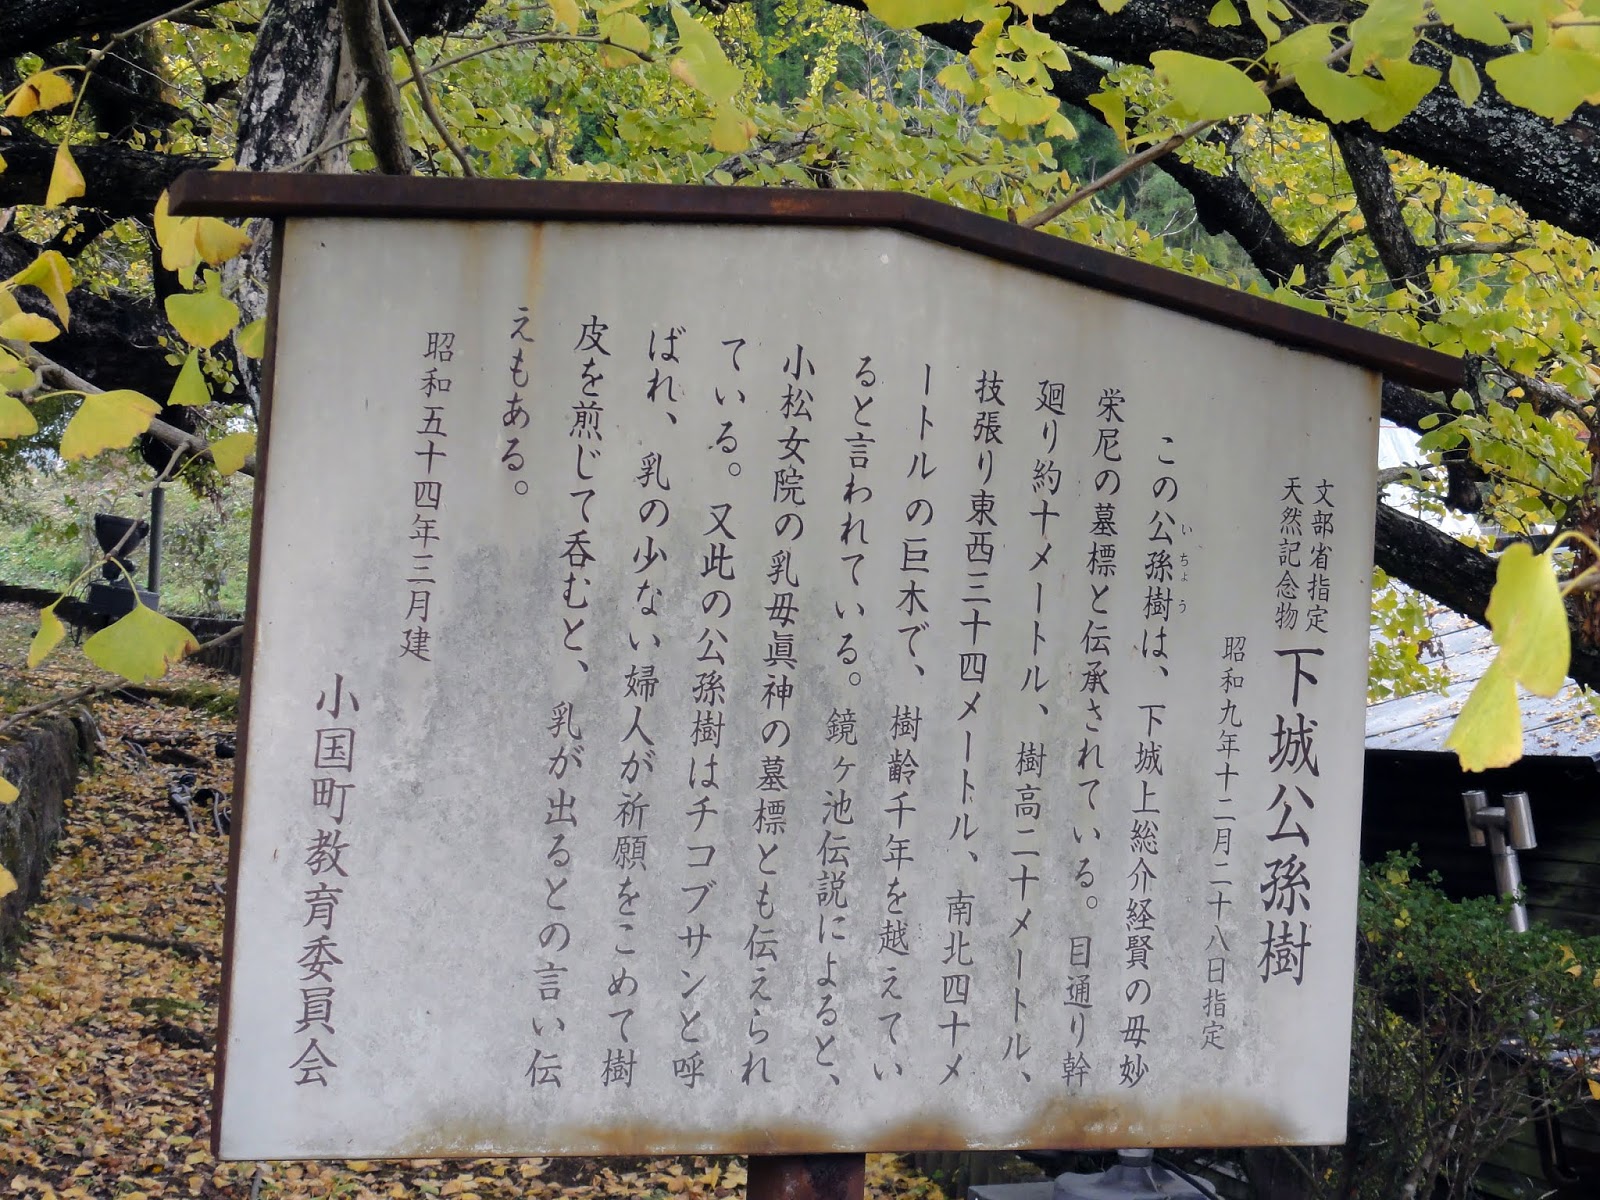 文部省指定
天然記念物
下城公孫樹
昭和九年十二月二十八日指定
いちょう
この公孫樹は、下城上総介経賢の母妙
栄尼の墓標と伝承されている。目通り幹
廻り約十メートル、樹高二十メートル、
技張り東西三十四メートル、南北四十メ
ートルの巨木で、樹齢千年を越えてい
ると言われている。鏡ヶ池伝説によると、
小松女院の乳母眞神の墓標とも伝えられ
ている。又此の公孫樹はチコブサンと呼
ばれ、乳の少ない婦人が祈願をこめて樹
皮を煎じて呑むと、乳が出るとの言い伝
えもある。
昭和五十四年三月建
小国町教育委員会